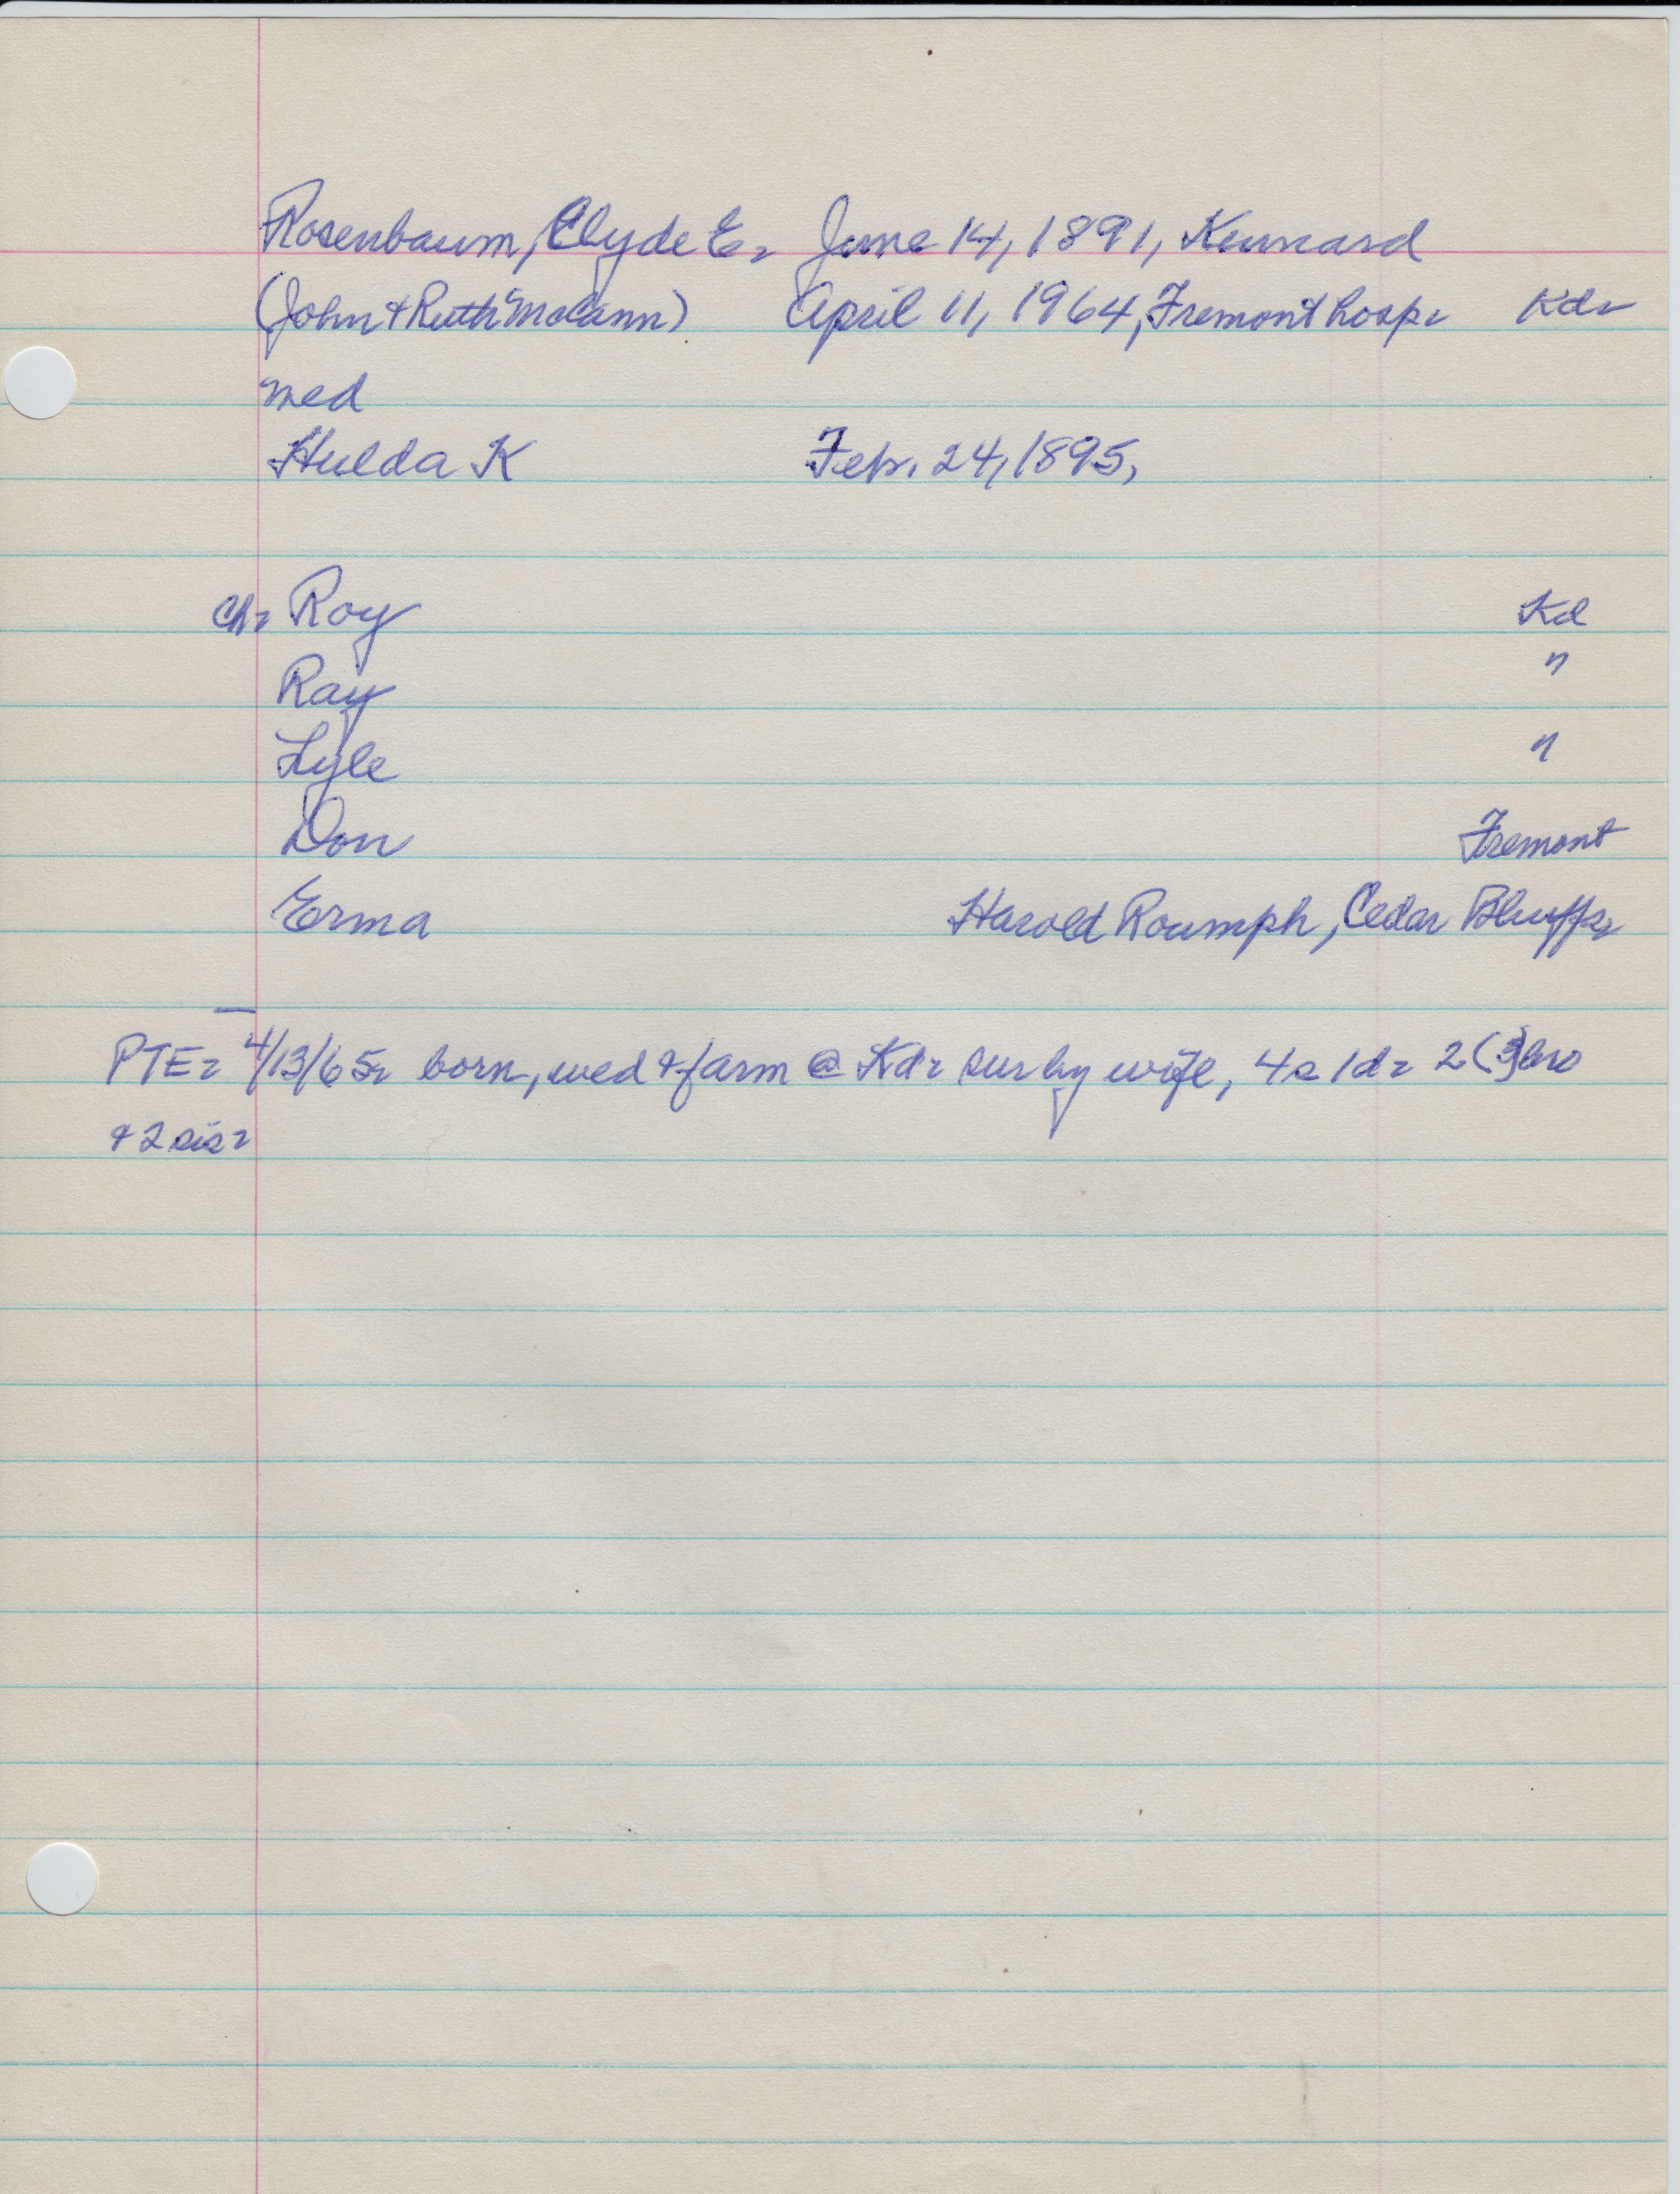 Rosenbaum, Clyde E. June 14, 1891, Kennard
(John + Ruth McCann) April 11, 1964, Fremont hosp. Kd.
wed
Hulda K Feb. 24, 1895,
Ch. Roy Kd
Ray "
Lyle "
Don Fremont
Erma Harold Roumph, Cedar Bluffs.
PTE. 4/13/65. born, wed & farm @ Kd. sur by wife, 4s 1d. 2 (3) bro
& 2 sis.